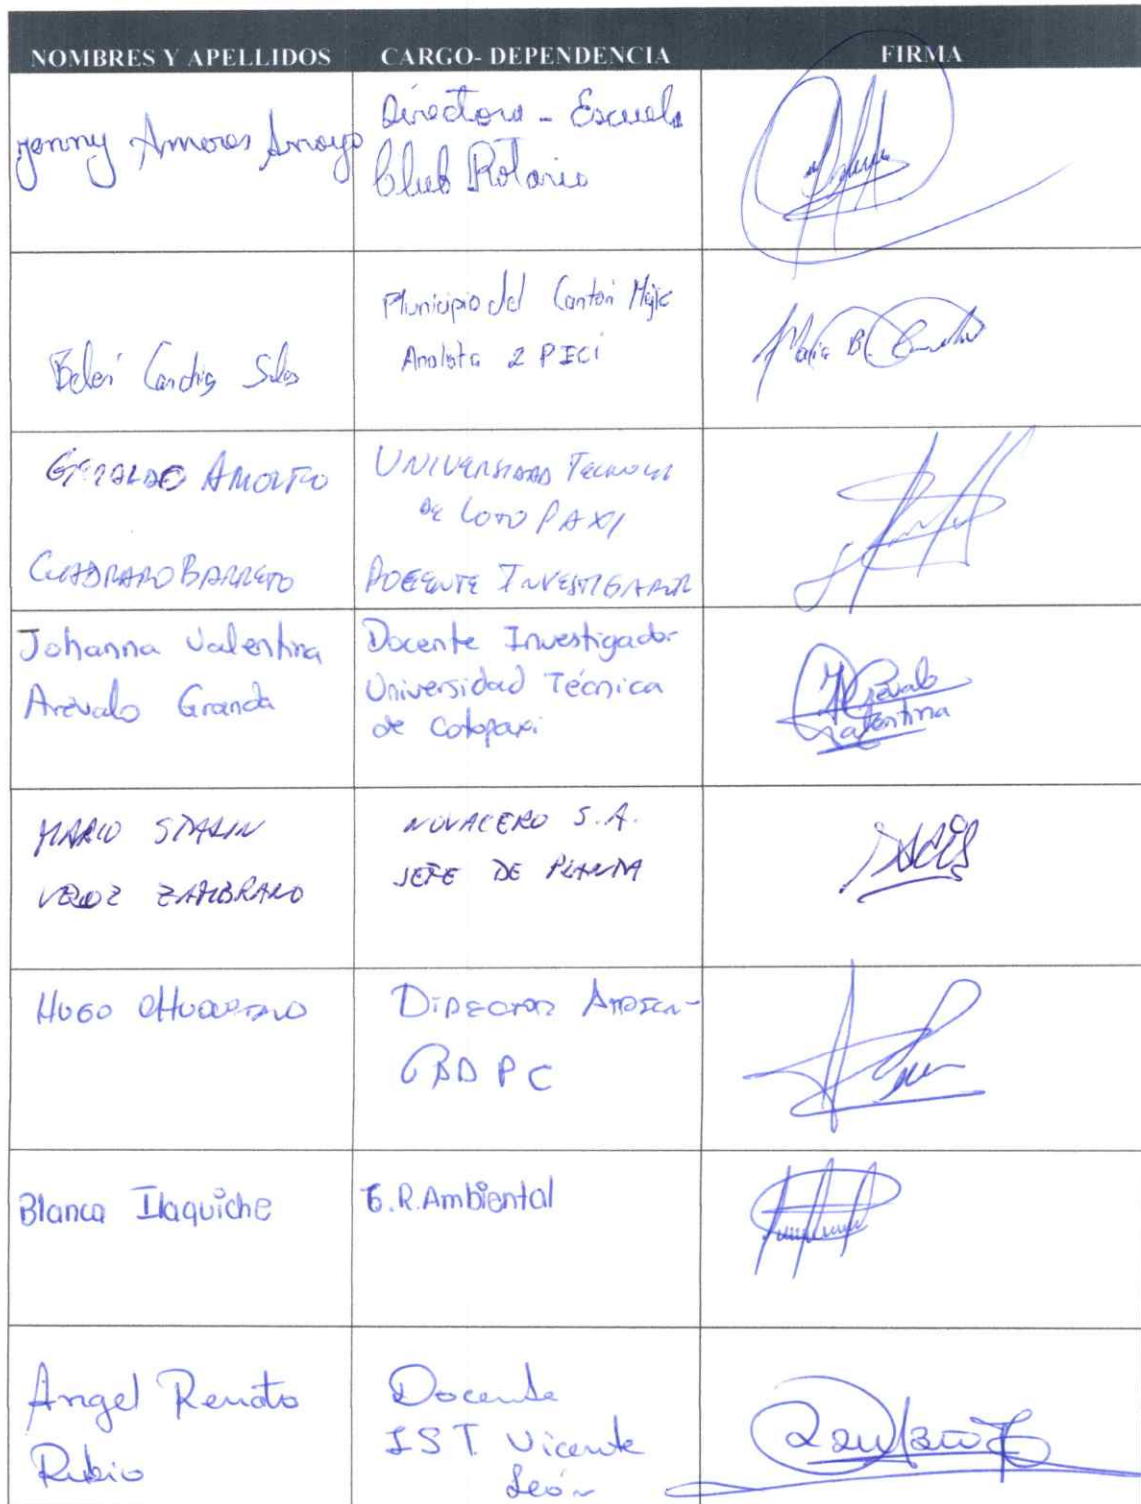 NOMBRES Y APELLIDOS CARGO- DEPENDENCIA FIRMA
Jenny Amores Arroyo
Directora - Escuela
Club Rotario
Municipio del Cantón
Analista 2
Belén
María B.
GERALDO
CUADRADO BARRETO
UNIVERSIDAD
DE COTOPAXI
DOCENTE INVESTIGADOR
Johanna Valentina
Arévalo Granda
Docente Investigador
Universidad Técnica
de Cotopaxi
Arevalo
Valentina
MARIO STALIN
VELOZ ZAMBRANO
NOVACERO S.A.
JEFE DE PLANTA
HUGO
DIRECTOR
PC
Blanca Ilaquiche
G.R.Ambiental
Angel Renato
Rubio
Docente
IST Vicente
León